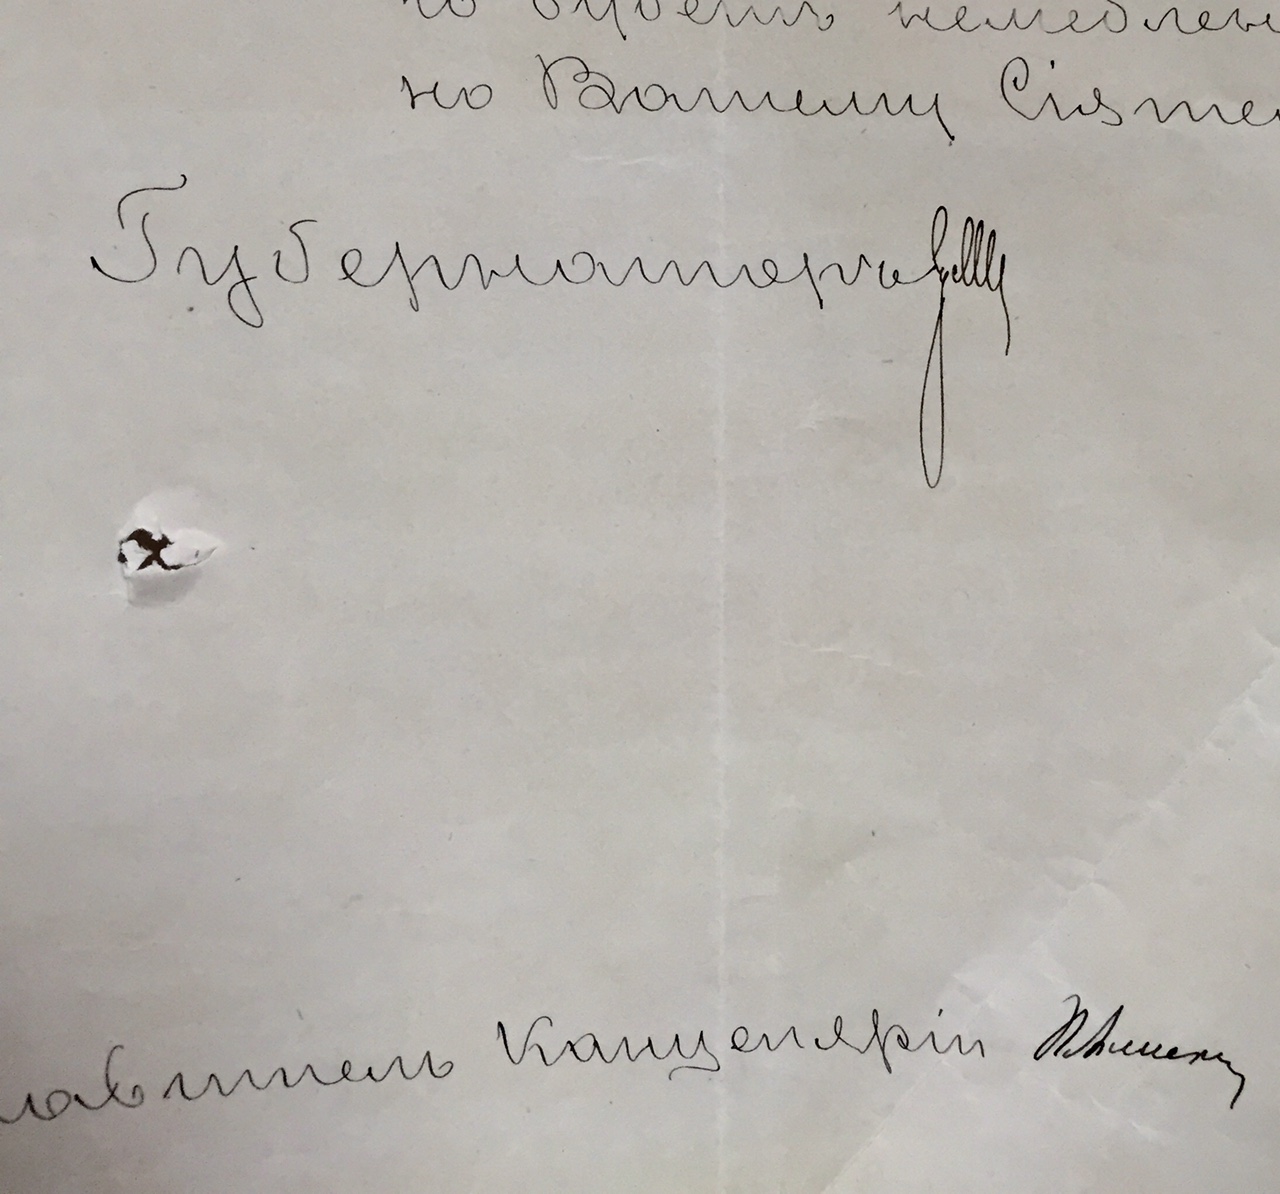 го будетъ немедлен
но Вашему Сіяте
Губернаторъ
лавитель Канцеляріи